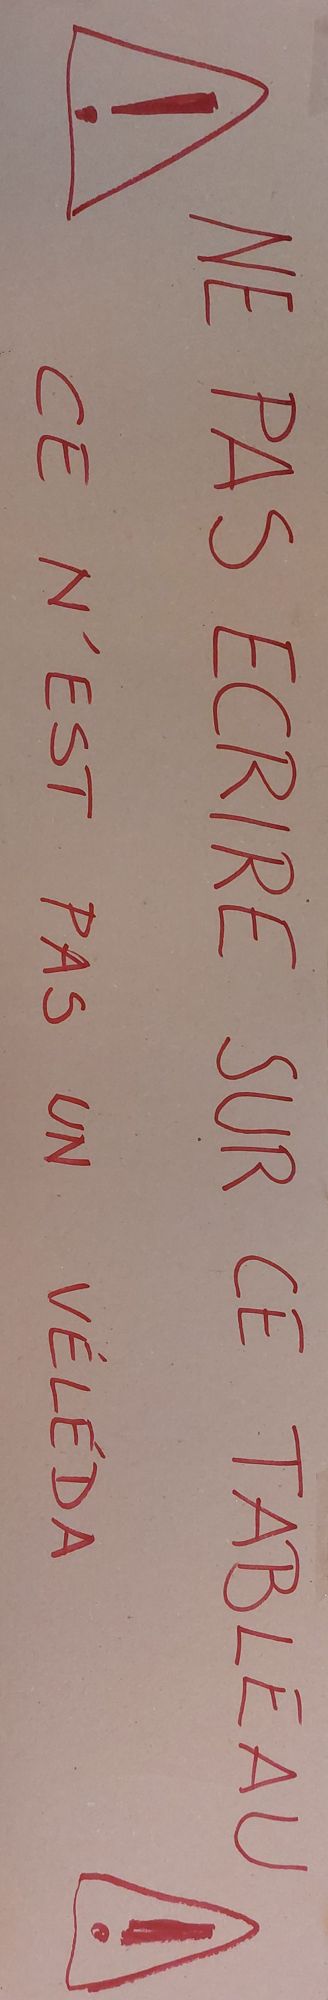 NE PAS ECRIRE SUR CE TABLEAU
CE N'EST PAS UN VÉLÉDA